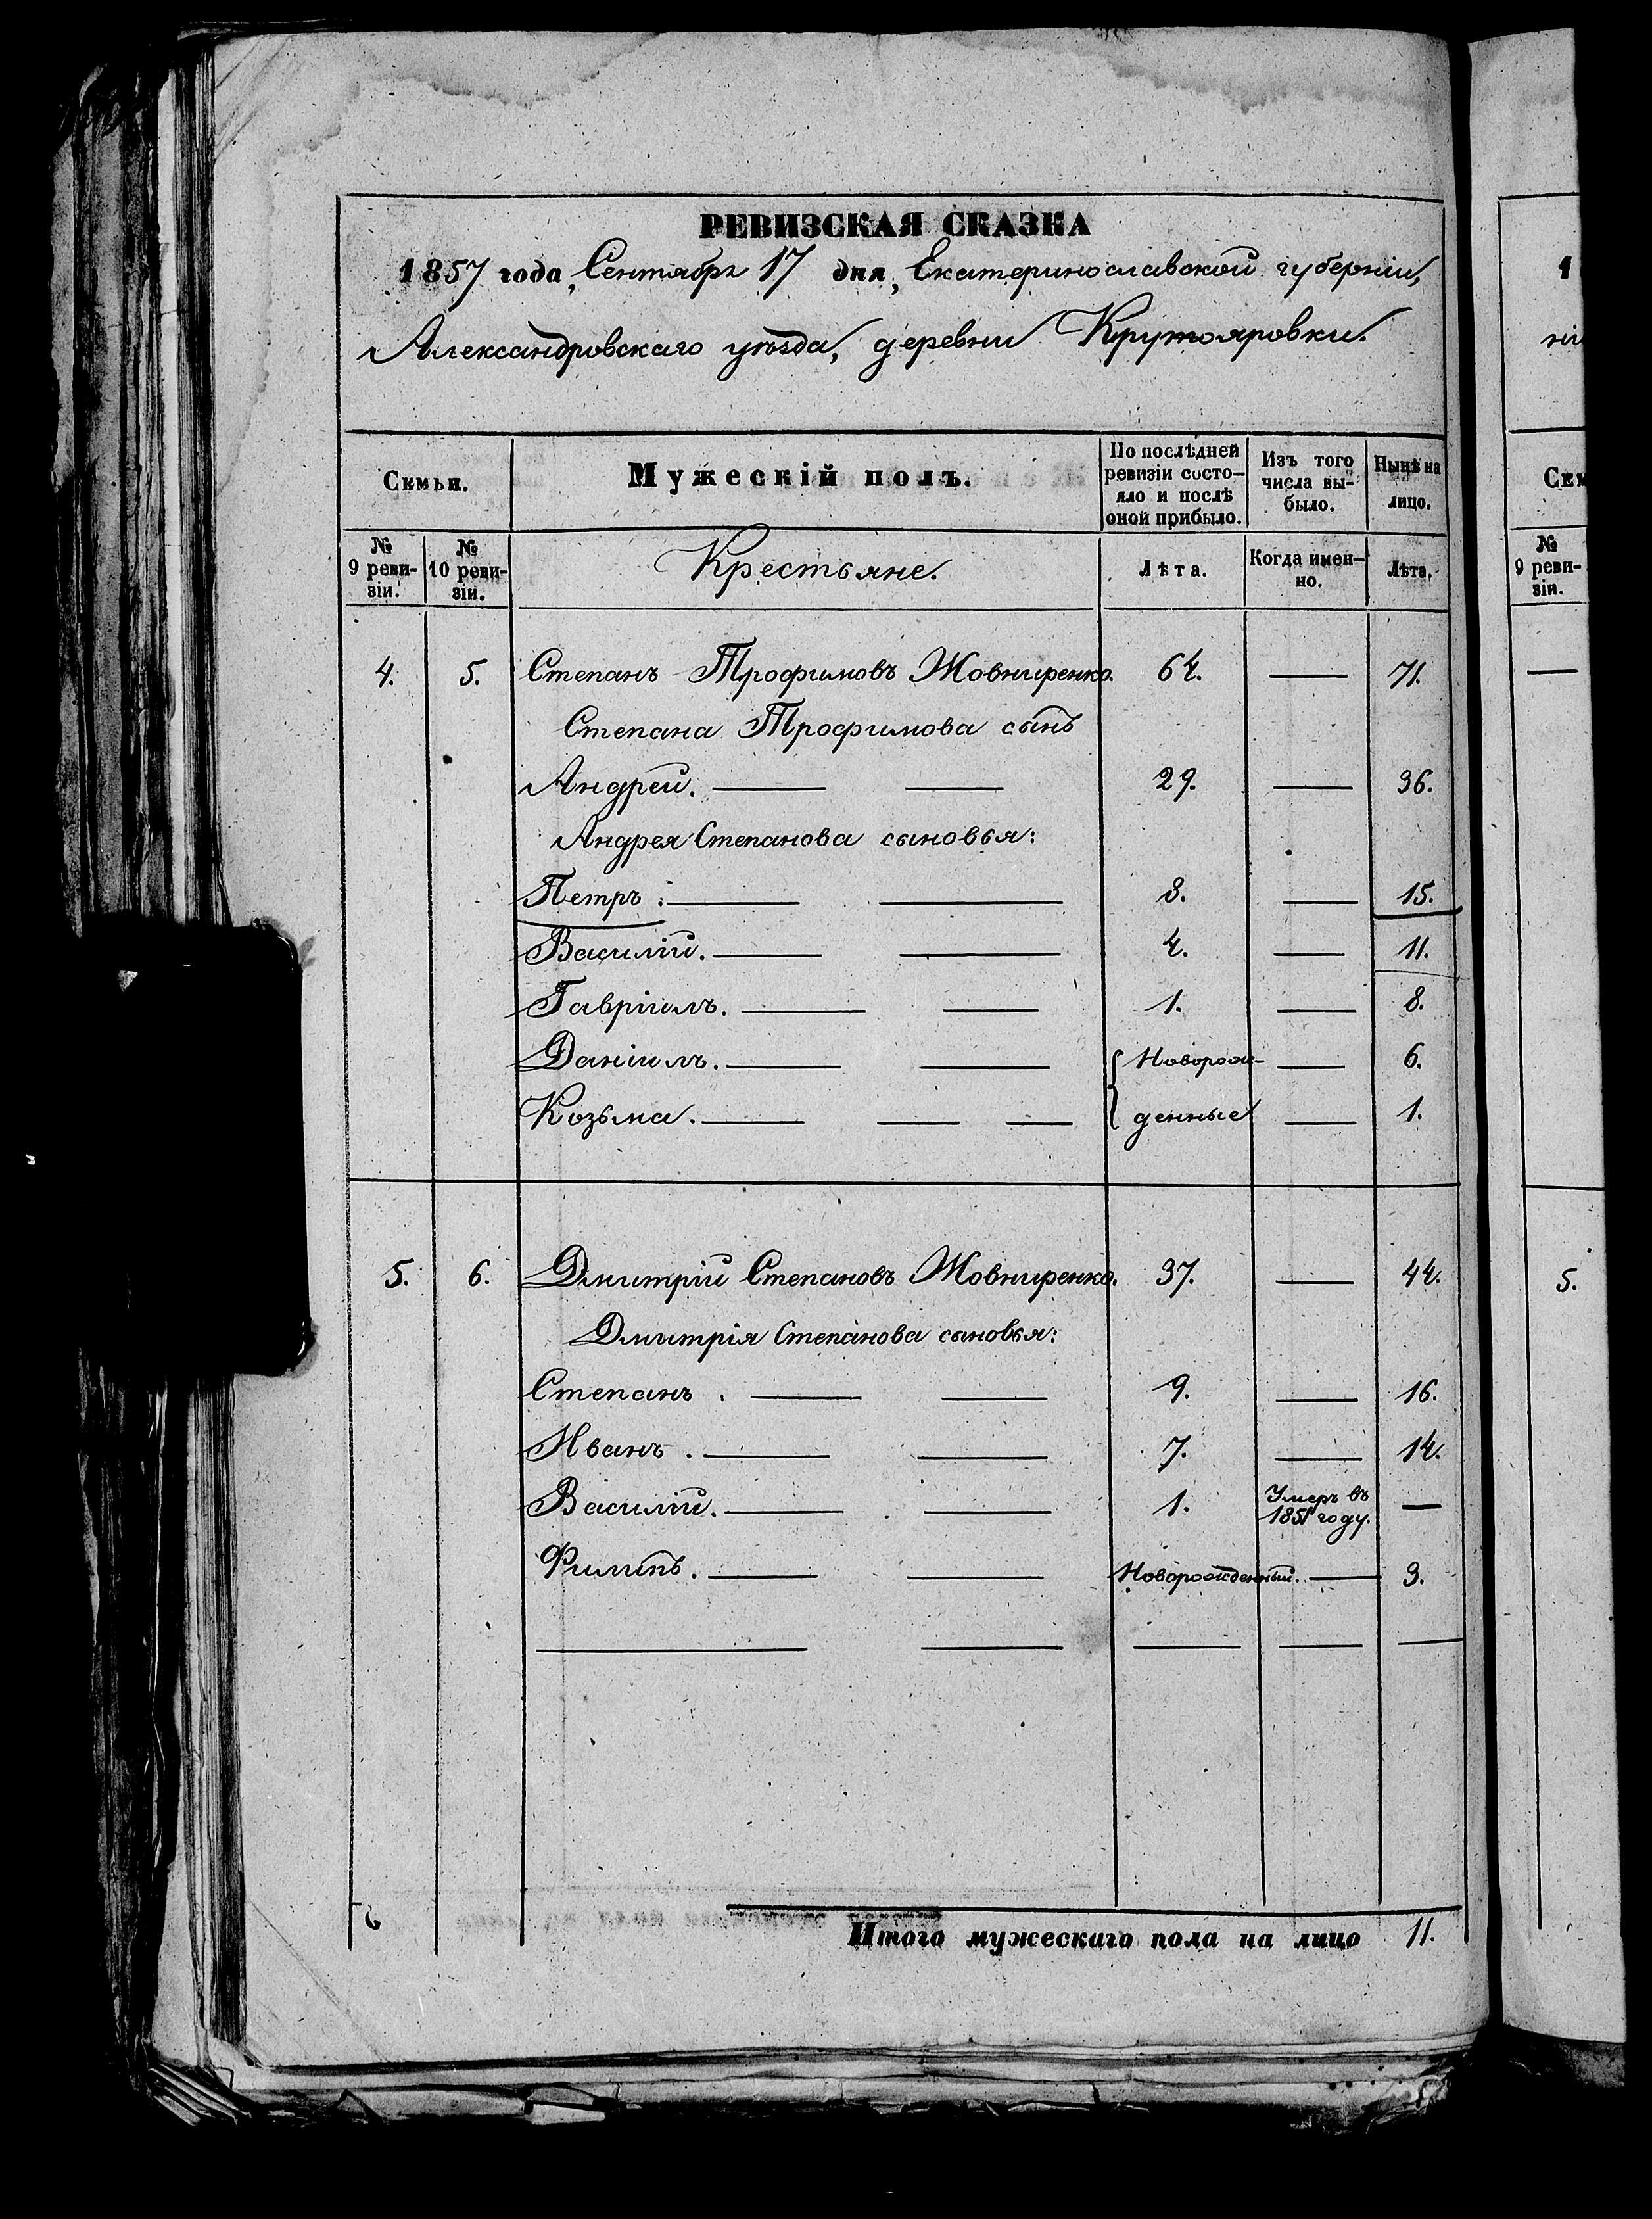 РЕВИЗСКАЯ СКАЗКА
1857 года, Сентября 17 дня, Екатеринославской губерніи,
Александровскаго уѣзда, деревни Крутояровки.
Семьи.
Мужескій полъ.
По послѣдней ревизіи состо-
яло и послѣ оной прибыло.
Изъ того числа вы-
было.
Нынѣ на лицо.
№ 9 реви-
зіи.
№ 10 реви-
зіи.
Крестьяне.
Лѣта.
Когда имен-
но.
Лѣта.
4. 5. Степанъ Трофимовъ Жовниренко. 64. — 71.
Степана Трофимова сынъ
Андрей. — — 29. — 36.
Андрея Степанова сыновья:
Петръ: — — 8. — 15.
Василій. — — 4. — 11.
Гавріилъ. — — 1. — 8.
Даніилъ. — — Новорож- — 6.
Козьма. — — — денные — 1.
5. 6. Дмитрій Степановъ Жовниренко. 37. — 44.
Дмитрія Степанова сыновья:
Степанъ. — — 9. — 16.
Иванъ. — — 7. — 14.
Василій. — — 1. Умеръ въ 1851 году. —
Филипъ. — — Новорожденный. — 3.
Итого мужескаго пола на лицо 11.
1
Сем
№
9 реви-
зіи.
5.